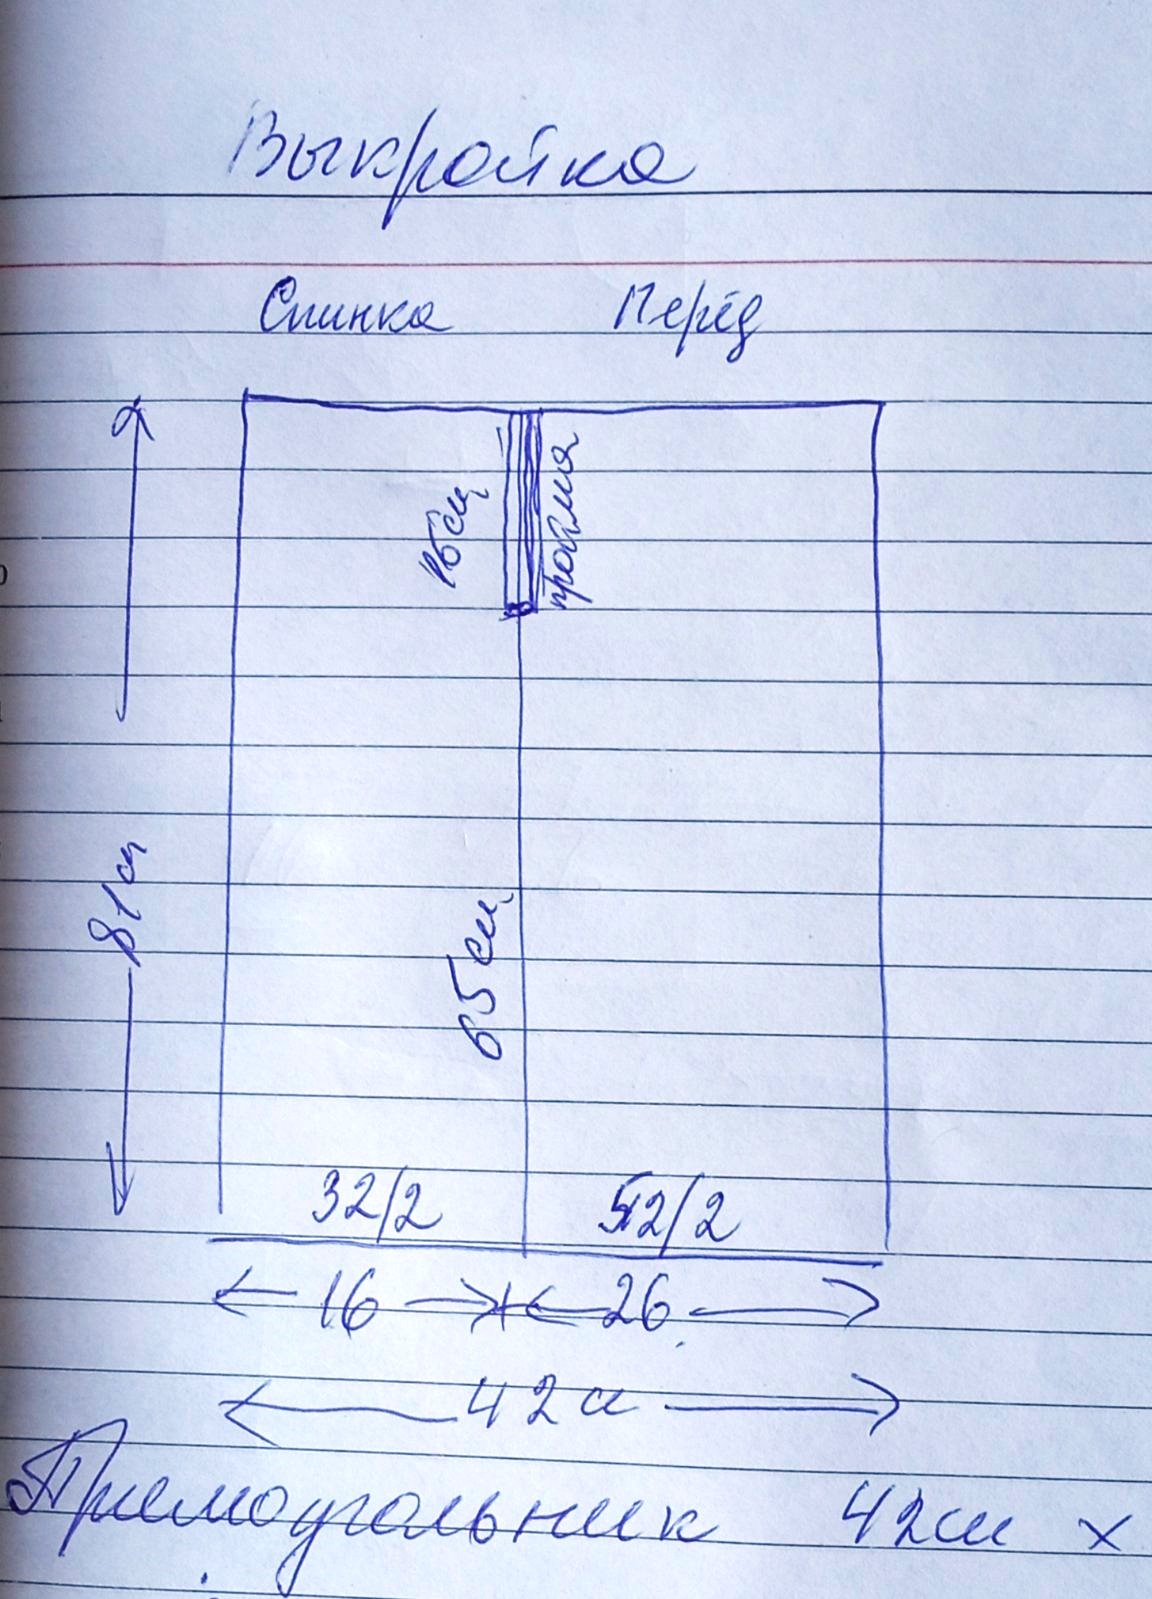 Выкройка
Спинка Перёд
16 см
пройма
81 см
65 см
32/2 52/2
16 26
42 см
Прямоугольник 42см x